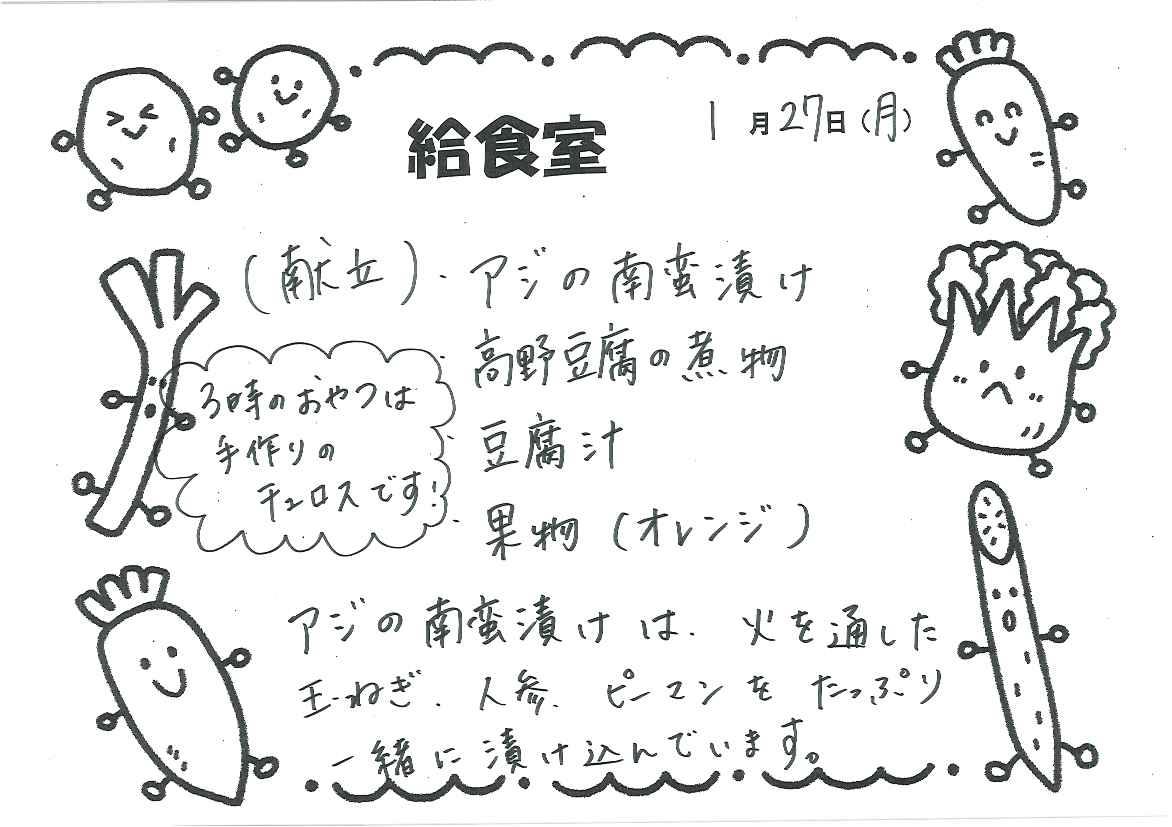 給食室
1月27日(月)
(献立)・アジの南蛮漬け
・高野豆腐の煮物
・豆腐汁
・果物(オレンジ)
3時のおやつは
手作りの
チュロスです!
アジの南蛮漬けは、火を通した
玉ねぎ、人参、ピーマンをたっぷり
一緒に漬け込んでいます。